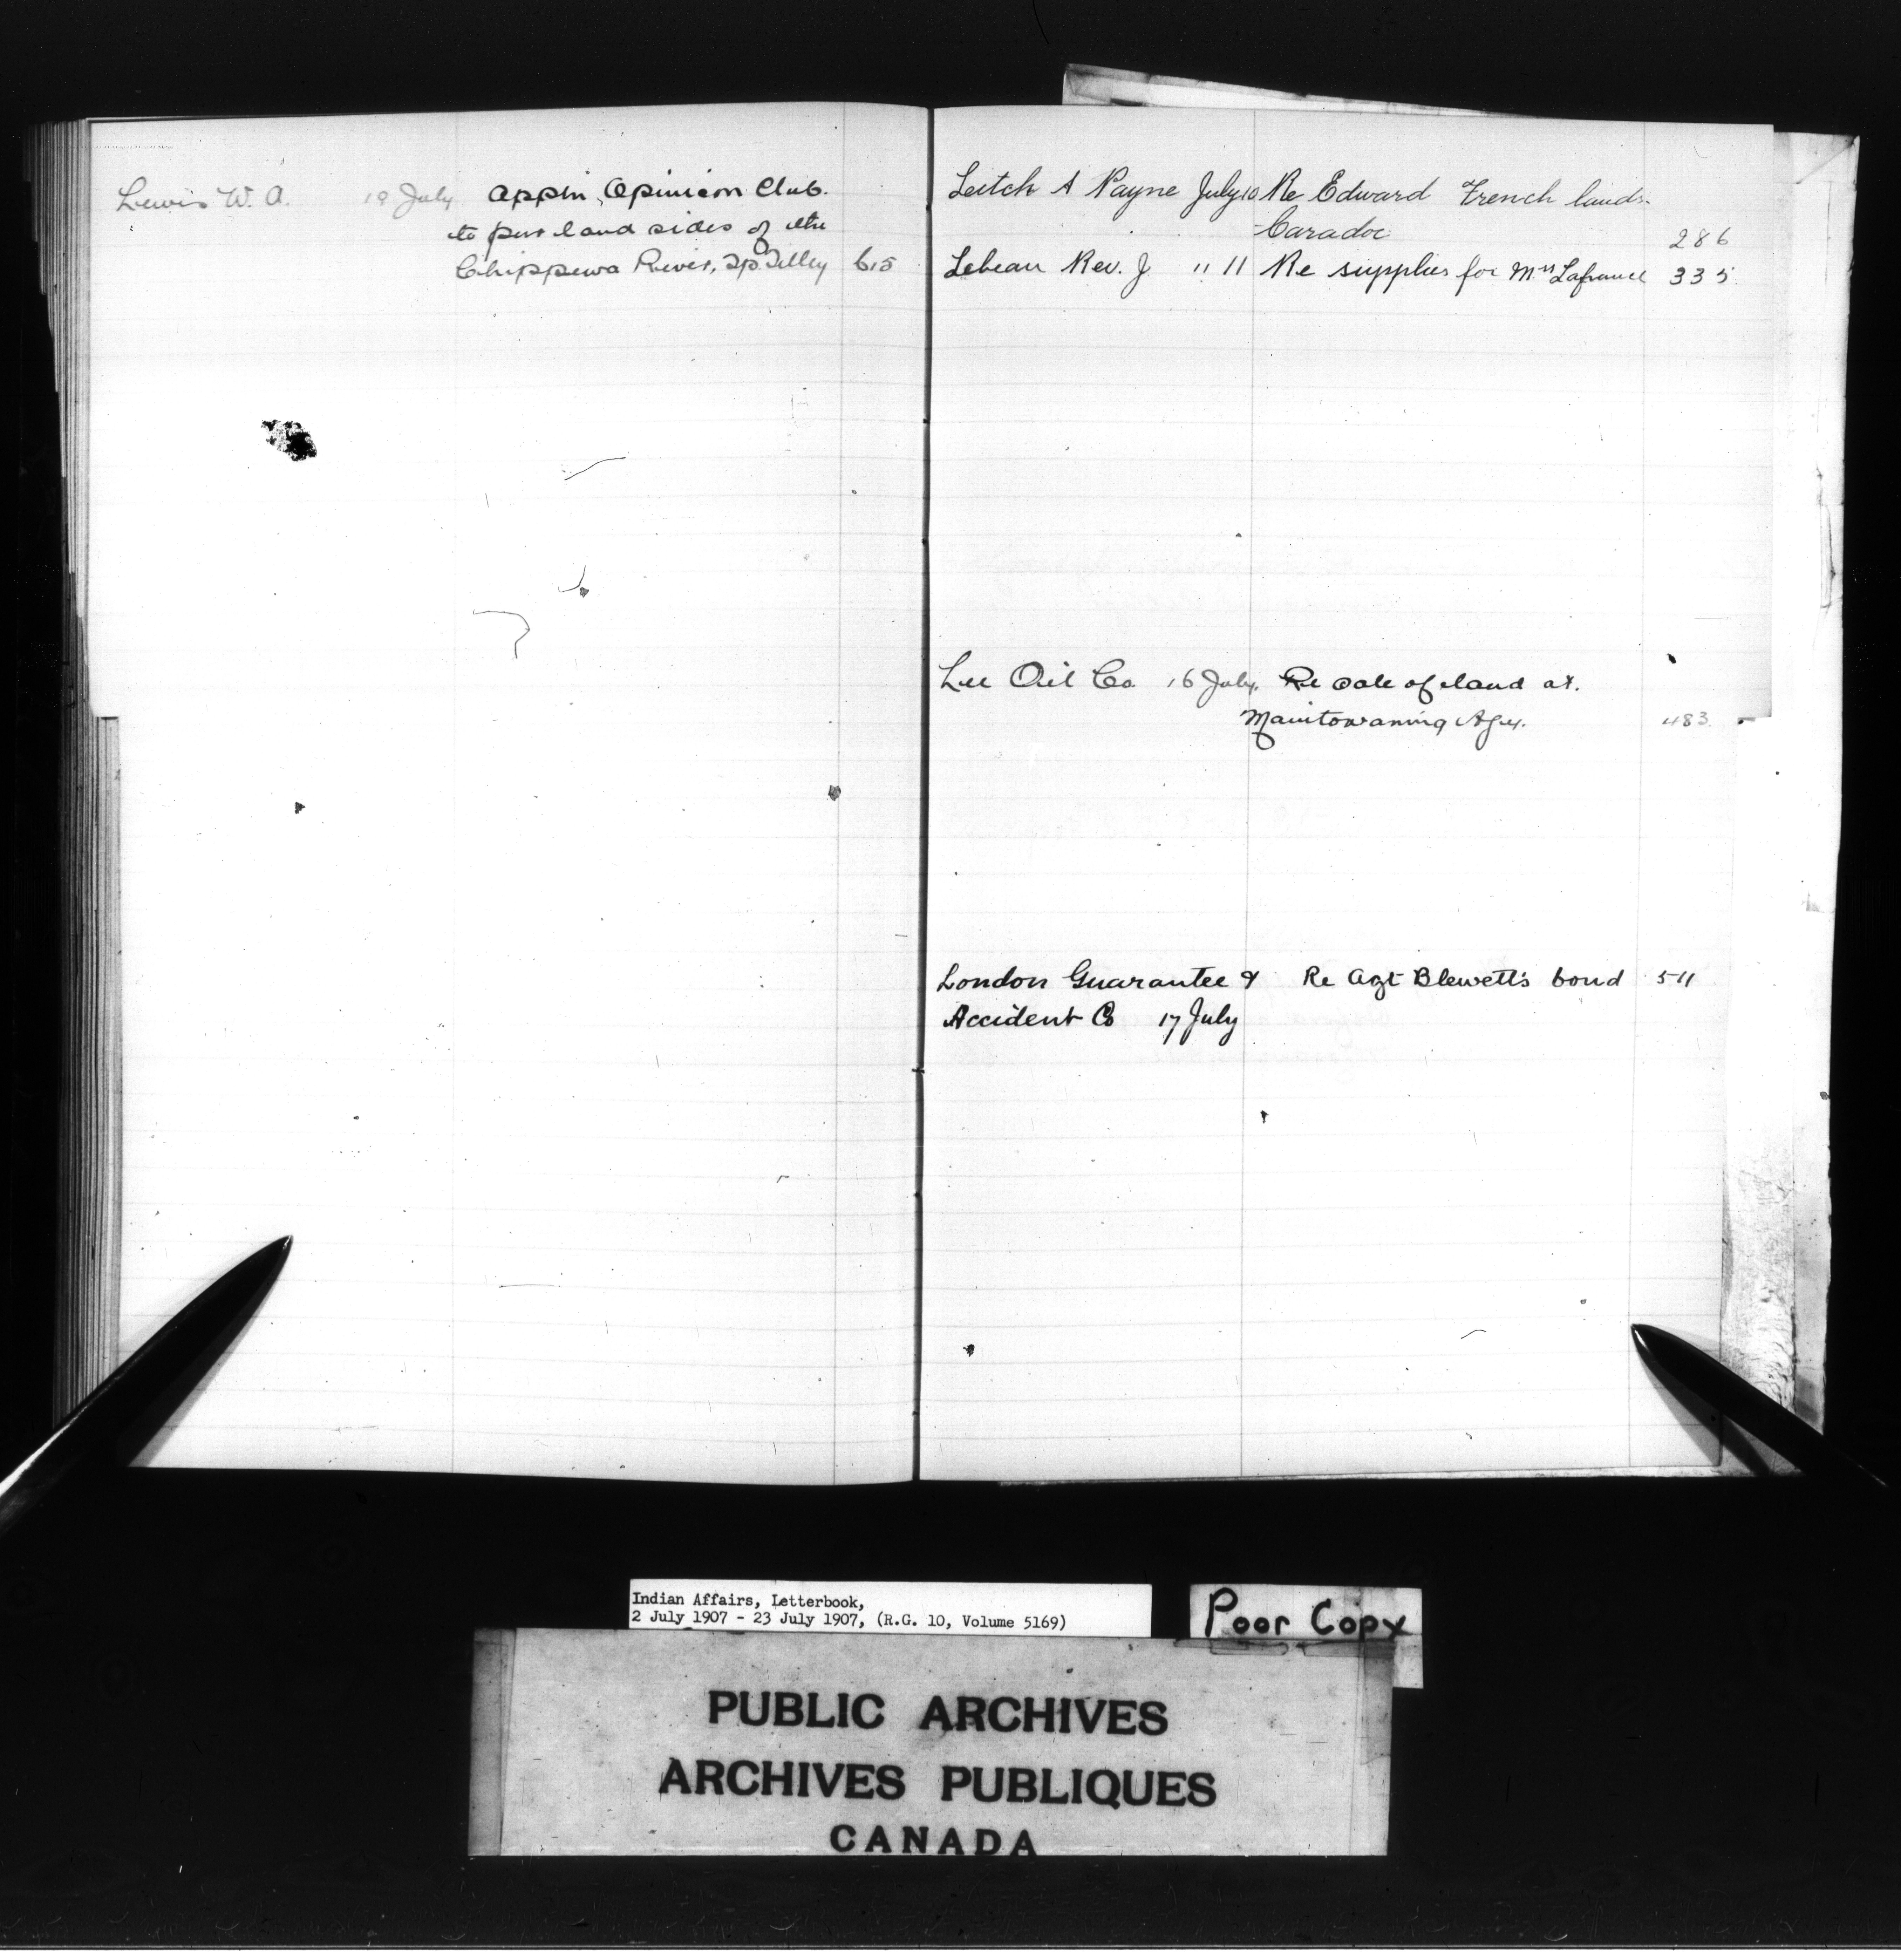 Lewis W. A. 18 July Appin, Opinicon Club.
to pur land sides of the
Chippewa River, Tp. Tilley 615
Leitch A Payne July 10 Re Edward French lands.
Caradoc 286
Lebeau Rev. J. " 11 Re supplies for Mrs Lafrance 335
Lee Oil Co. 16 July. Re sale of land at.
Manitowaning Agy. 483
London Guarantee & Re Agt Blewett's bond 511
Accident Co 17 July
Indian Affairs, Letterbook,
2 July 1907 - 23 July 1907, (R.G. 10, Volume 5169)
Poor Copy
PUBLIC ARCHIVES
ARCHIVES PUBLIQUES
CANADA